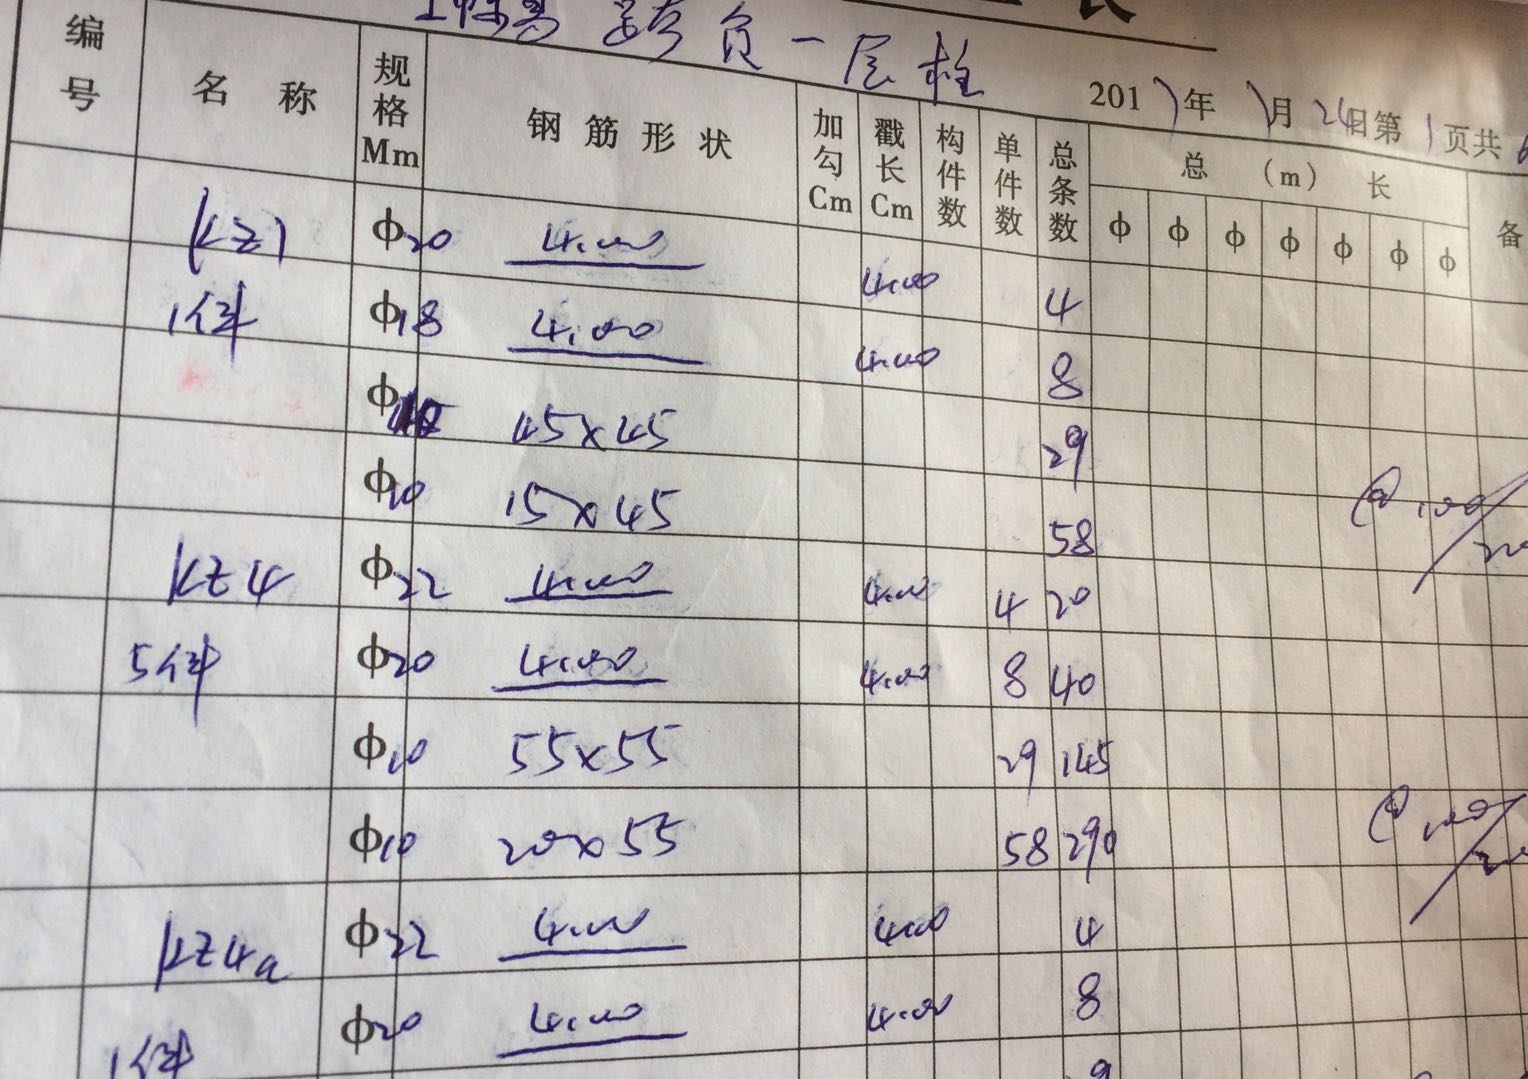 负一层柱
2017年7月24日第1页共
编号 名称 规格Mm 钢筋形状 加勾Cm 戳长Cm 构件数 单件数 总条数 总(m)长 备
ф ф ф ф ф ф ф
KZ1 ф20 4.00 4.00 4
1件 ф18 4.00 4.00 8
ф 45×45 29
ф10 15×45 58 @100/200
KZ4 ф22 4.00 4.00 4 20
5件 ф20 4.00 4.00 8 40
ф10 55×55 29 145
ф10 20×55 58 290 @100/200
KZ4a ф22 4.00 4.00 4
1件 ф20 4.00 4.00 8